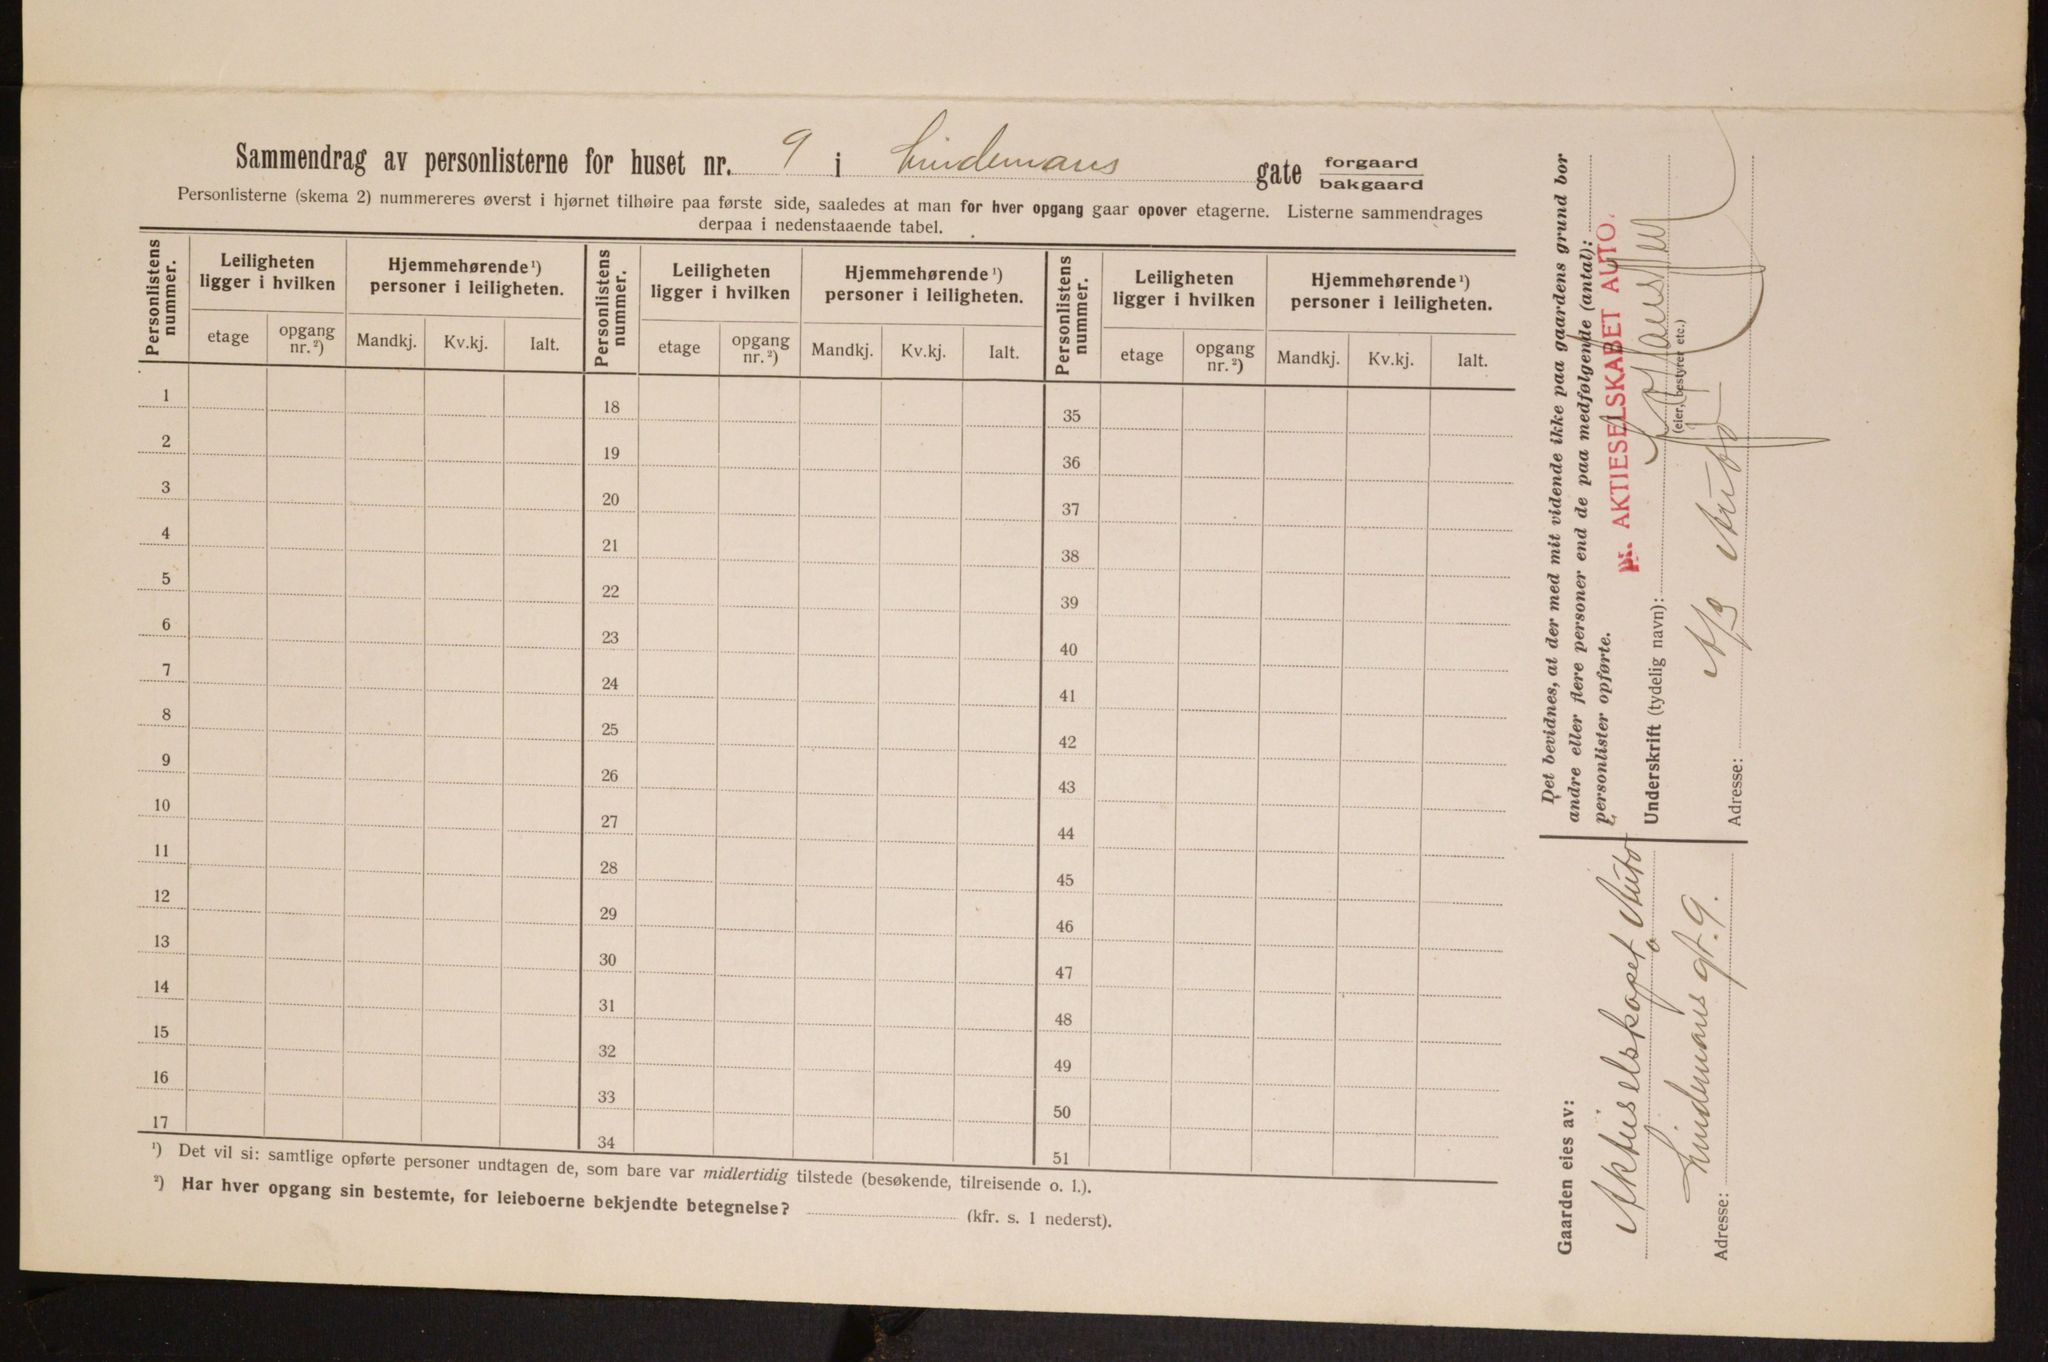 Sammendrag av personlisterne for huset nr. 9 i Lindemans gate forgaard bakgaard
Personlisterne (skema 2) nummereres øverst i hjørnet tilhøire paa første side, saaledes at man for hver opgang gaar opover etagerne. Listerne sammendrages
derpaa i nedenstaaende tabel.
Personlistens nummer. Leiligheten ligger i hvilken Hjemmehørende ¹) personer i leiligheten. Personlistens nummer. Leiligheten ligger i hvilken Hjemmehørende ¹) personer i leiligheten. Personlistens nummer. Leiligheten ligger i hvilken Hjemmehørende ¹) personer i leiligheten.
etage opgang nr. ²) Mandkj. Kv.kj. Ialt. etage opgang nr. ²) Mandkj. Kv.kj. Ialt. etage opgang nr. ²) Mandkj. Kv.kj. Ialt.
1 18 35
2 19 36
3 20 37
4 21 38
5 22 39
6 23 40
7 24 41
8 25 42
9 26 43
10 27 44
11 28 45
12 29 46
13 30 47
14 31 48
15 32 49
16 33 50
17 34 51
¹) Det vil si: samtlige opførte personer undtagen de, som bare var midlertidig tilstede (besøkende, tilreisende o. l.).
²) Har hver opgang sin bestemte, for leieboerne bekjendte betegnelse? (kfr. s. 1 nederst).
Gaarden eies av:
Aktieselskapet Auto
Adresse: Lindemans gt. 9.
Det bevidnes, at der med mit vidende ikke paa gaardens grund bor
andre eller flere personer end de paa medfølgende (antal):
personlister opførte.
AKTIESELSKABET AUTO.
Underskrift (tydelig navn):
(eier, bestyrer etc.)
Adresse: A/S Auto